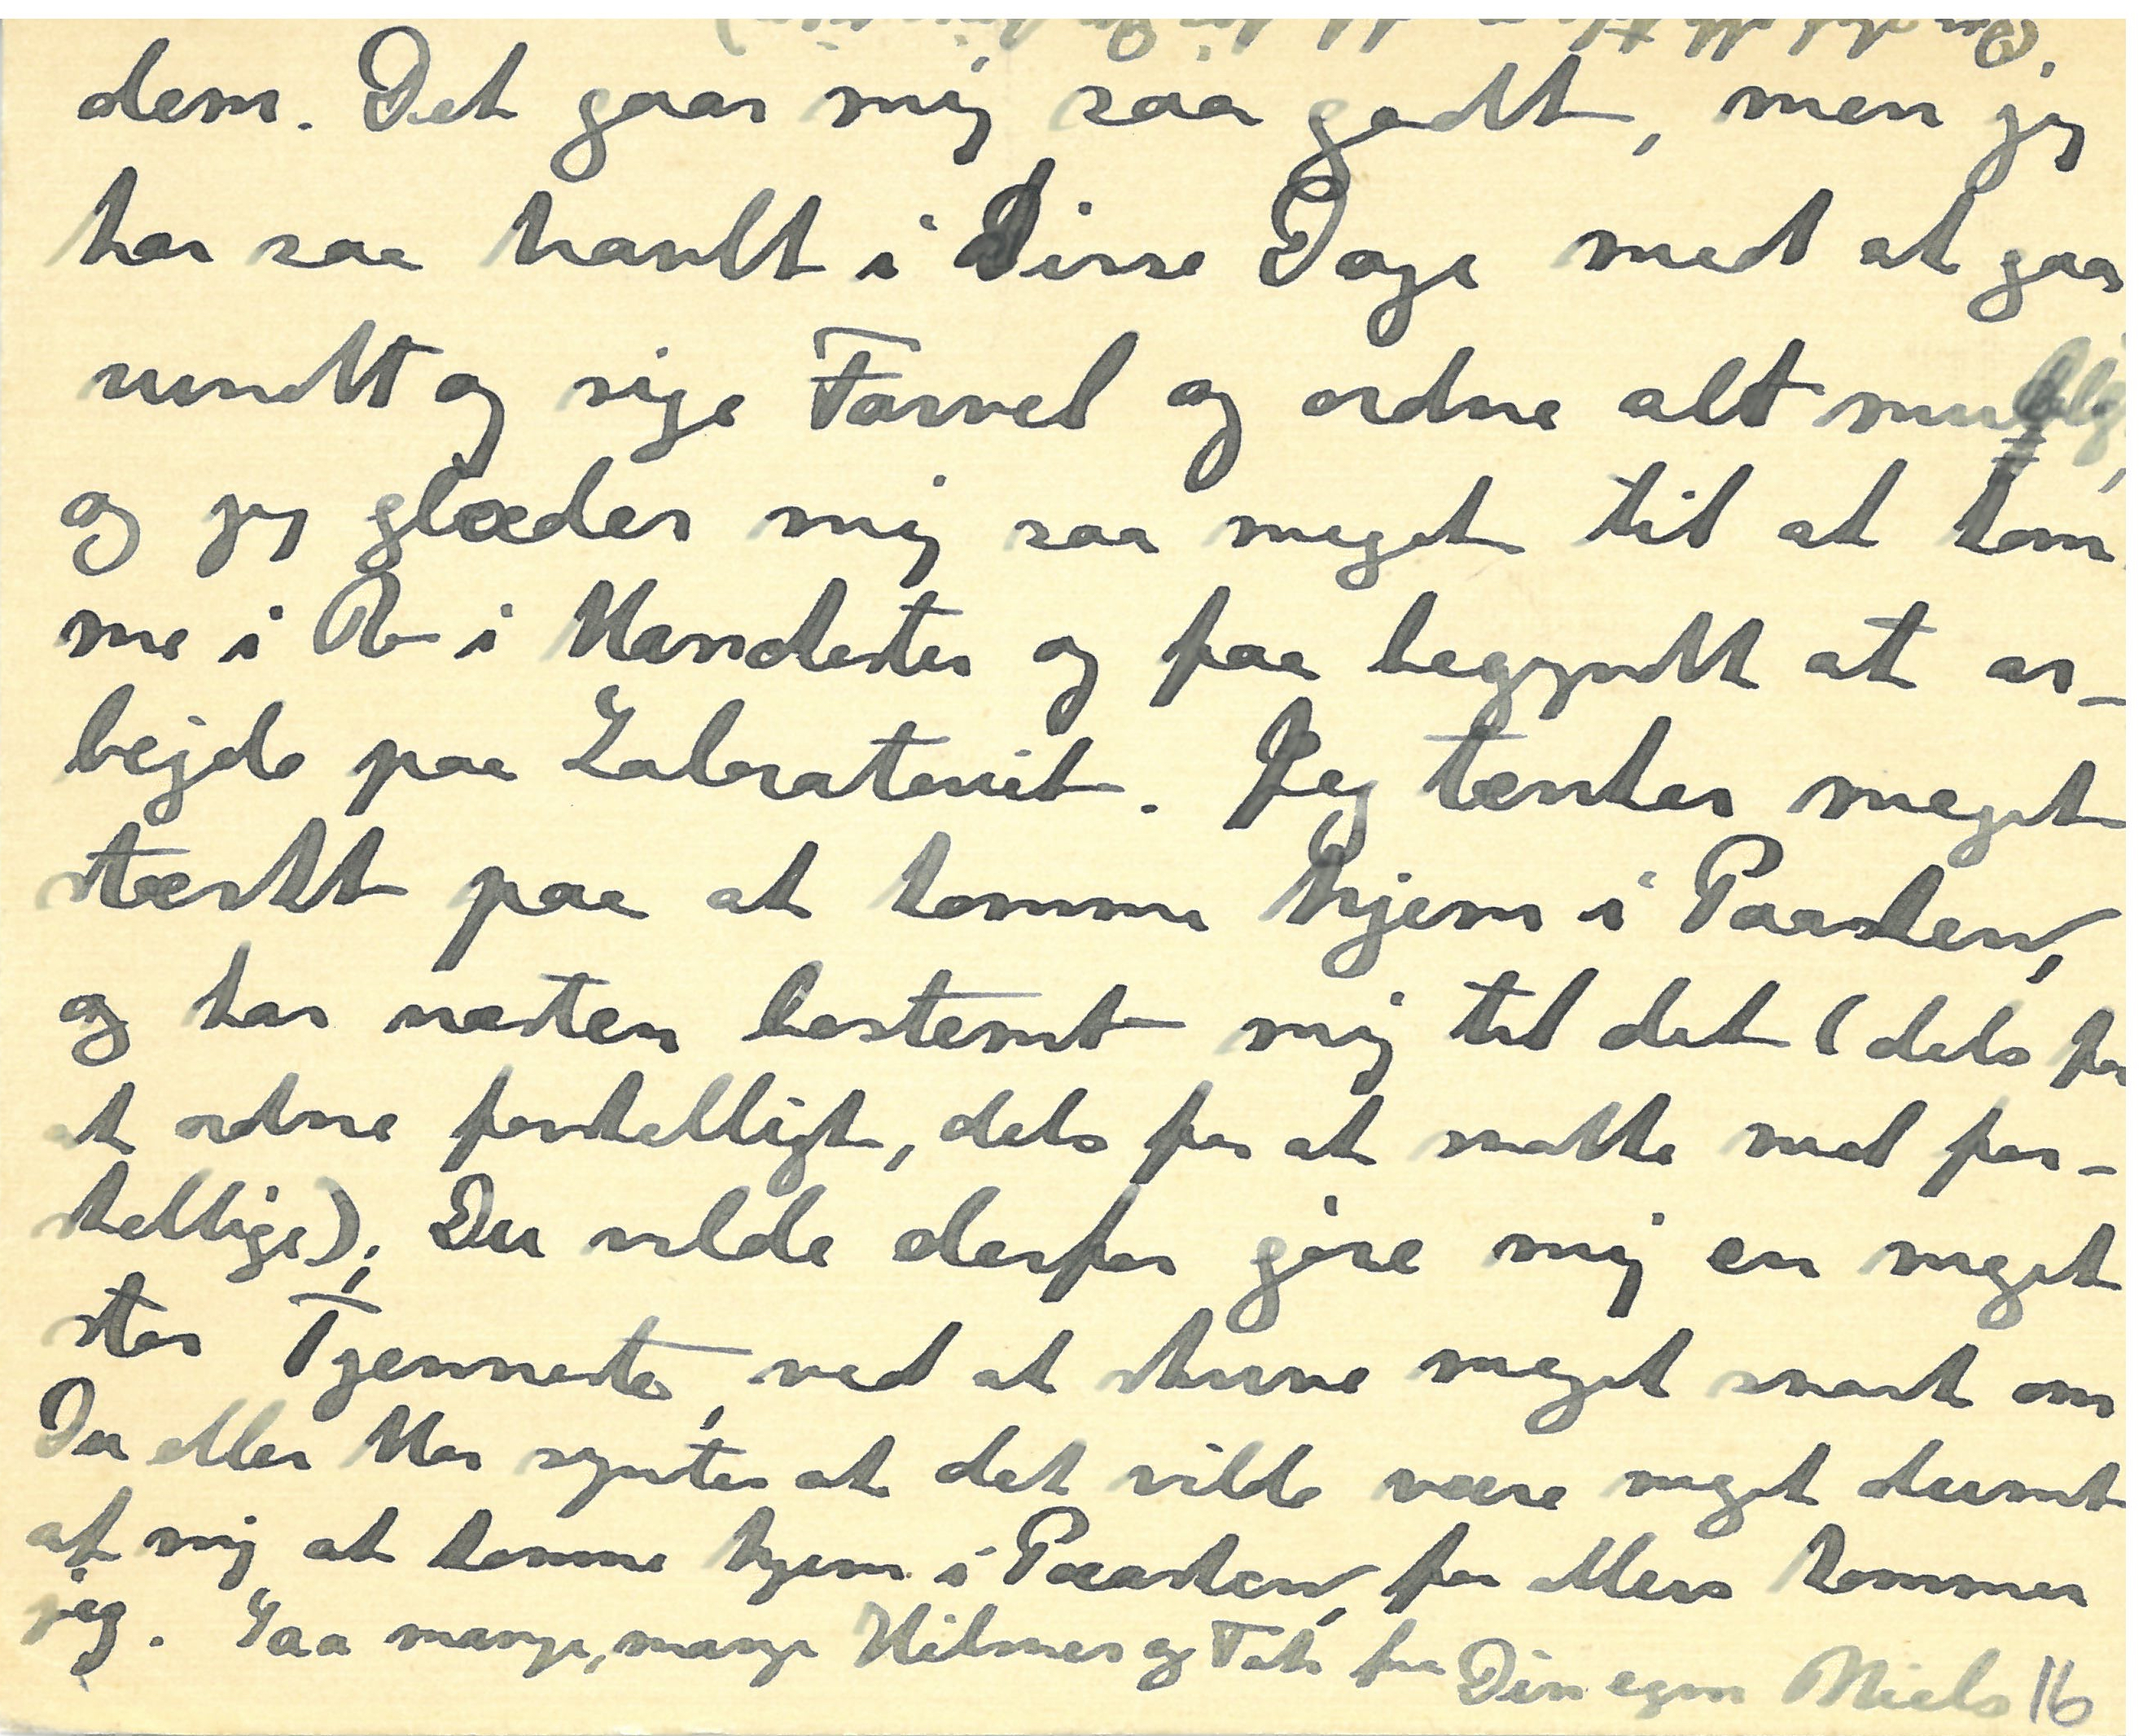 dem. Det gaar mig saa godt, men jeg
har saa travlt i Disse Dage med at gaa
rundt og sige Farvel og ordne alt muligt,
og jeg glæder mig saa meget til at kom
me i Ro i Manchester og faa begyndt at ar-
bejde paa Laboratoriet. Jeg tænker meget
stærkt paa at komme hjem i Paasken,
og har næsten bestemt mig til det (dels for
at ordne forskelligt, dels for at snakke med for-
skellige); Du vilde derfor gøre mig en meget
stor Tjenneste, ved at skrive meget snart om
Du eller Mor syntes at det vilde være meget dumt
af mig at komme hjem i Paasken, for ellers kommer
jeg. Saa mange, mange Hilsner og Tak fra Din egen Niels 16